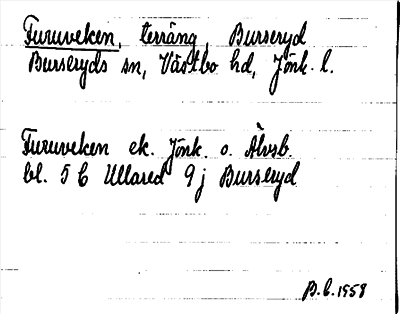 Furuveken, terräng Burseryd
Burseryds sn, Västbo hd, Jönk. l.
Furuveken ek. Jönk. o. Älvsb.
bl. 5 C Ullared 9 j Burseryd
B.C. 1958